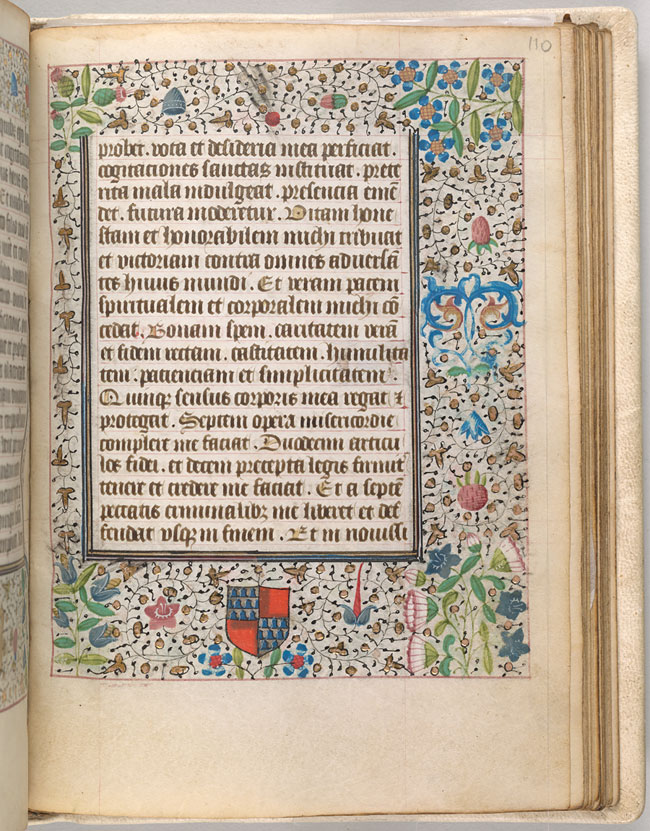 110
probet. vota et desideria mea perficiat.
cogitaciones sanctas instituat. prete
rita mala indulgeat. presencia emē
det. futura moderetur. Vitam hone
stam et honorabilem michi tribuat
et victoriam contra omnes adversā
tes huius mundi. Et veram pacem
spiritualem et corporalem michi cō
cedat. Bonam spem. caritatem verā
et fidem rectam. castitatem. humilita
tem. patienciam et simplicitatem.
Quinqꝫ sensus corporis mea regat ⁊
protegat. Septem opera misericordie
complere me faciat. Duodecim articu
los fidei. et decem precepta legis firmit᷑
tenere et credere me faciat. Et a septē
peccatis criminalibꝫ me liberet et def
fendat vsqꝫ in finem. Et in nouissi